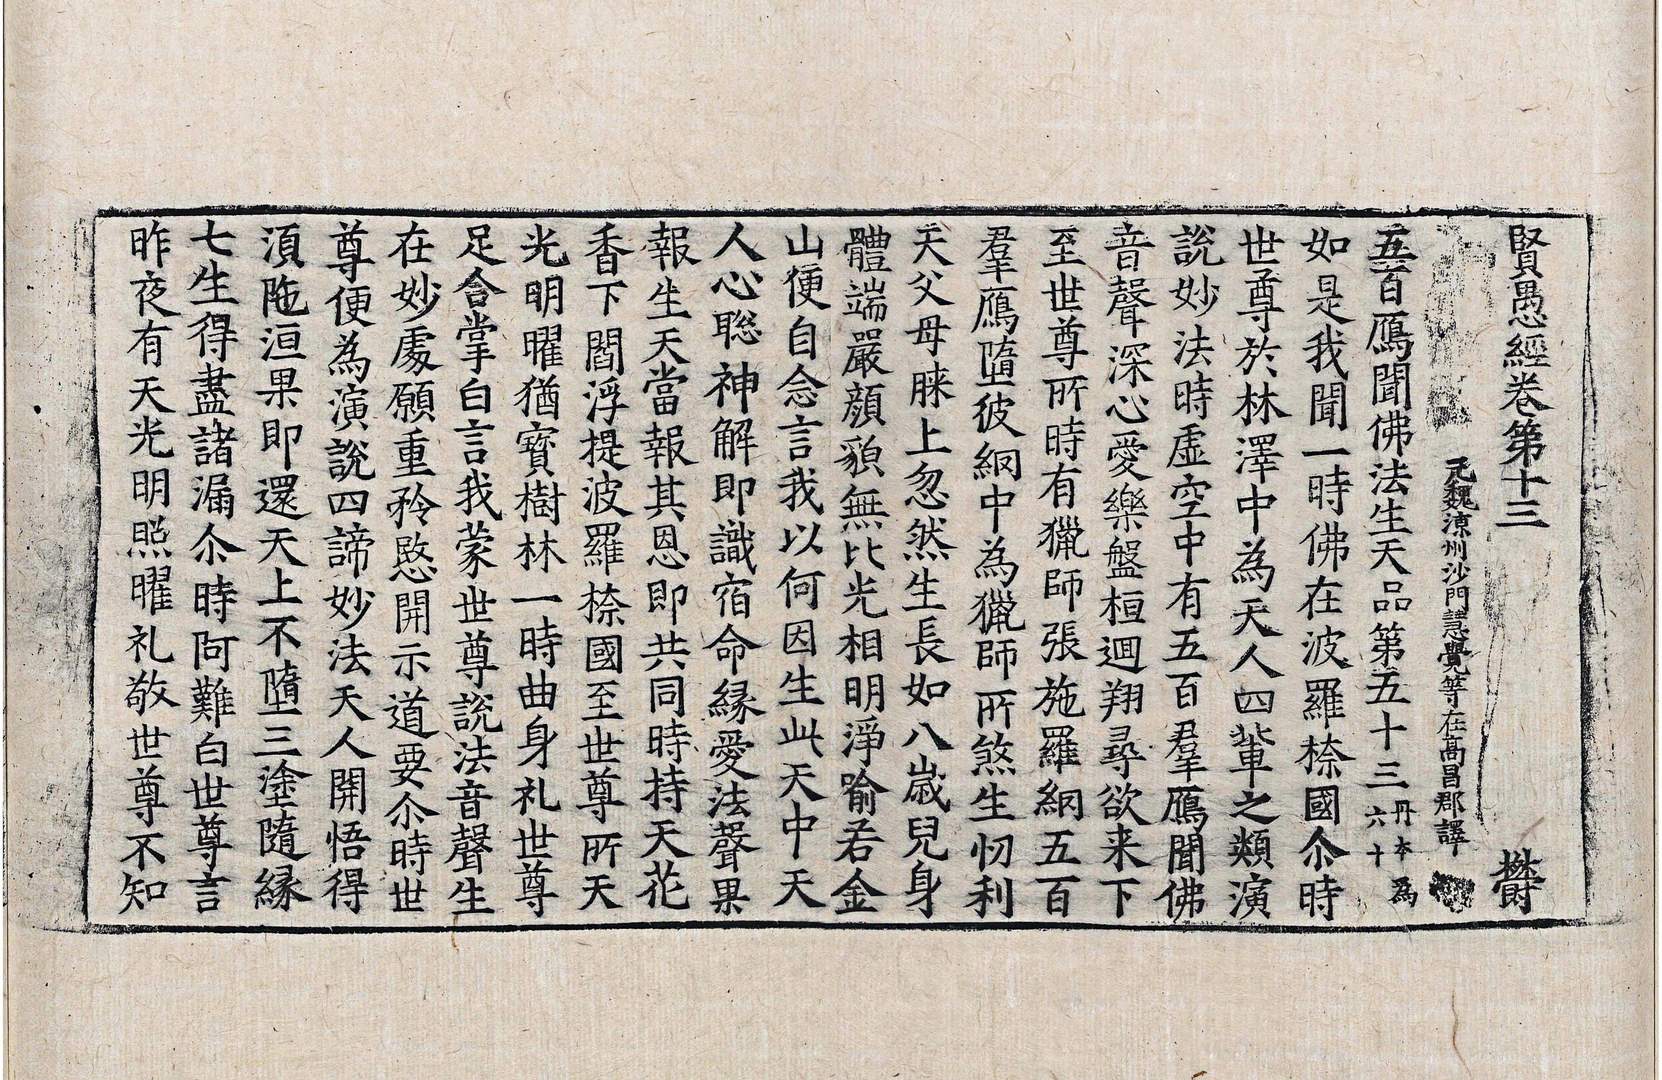 賢愚經卷第十三 欝
元魏涼州沙門慧覺等在高昌郡譯
五百鴈聞佛法生天品第五十三 丹本爲六十
如是我聞一時佛在波羅㮈國尒時
世尊於林澤中爲天人四輩之類演
說妙法時虛空中有五百羣鴈聞佛
音聲深心愛樂盤桓迴翔尋欲来下
至世尊所時有獵師張施羅網五百
羣鴈墮彼網中爲獵師所煞生忉利
天父母膝上忽然生長如八歲兒身
體端嚴顔貌無比光相明淨喻若金
山便自念言我以何因生此天中天
人心聡神解即識宿命緣愛法聲果
報生天當報其恩即共同時持天花
香下閻浮提波羅㮈國至世尊所天
光明曜猶寶樹林一時曲身礼世尊
足合掌白言我蒙世尊說法音聲生
在妙處願重矜愍開示道要尒時世
尊便爲演說四諦妙法天人開悟得
湏陁洹果即還天上不墮三塗隨緣
七生得盡諸漏尒時阿難白世尊言
昨夜有天光明照曜礼敬世尊不知